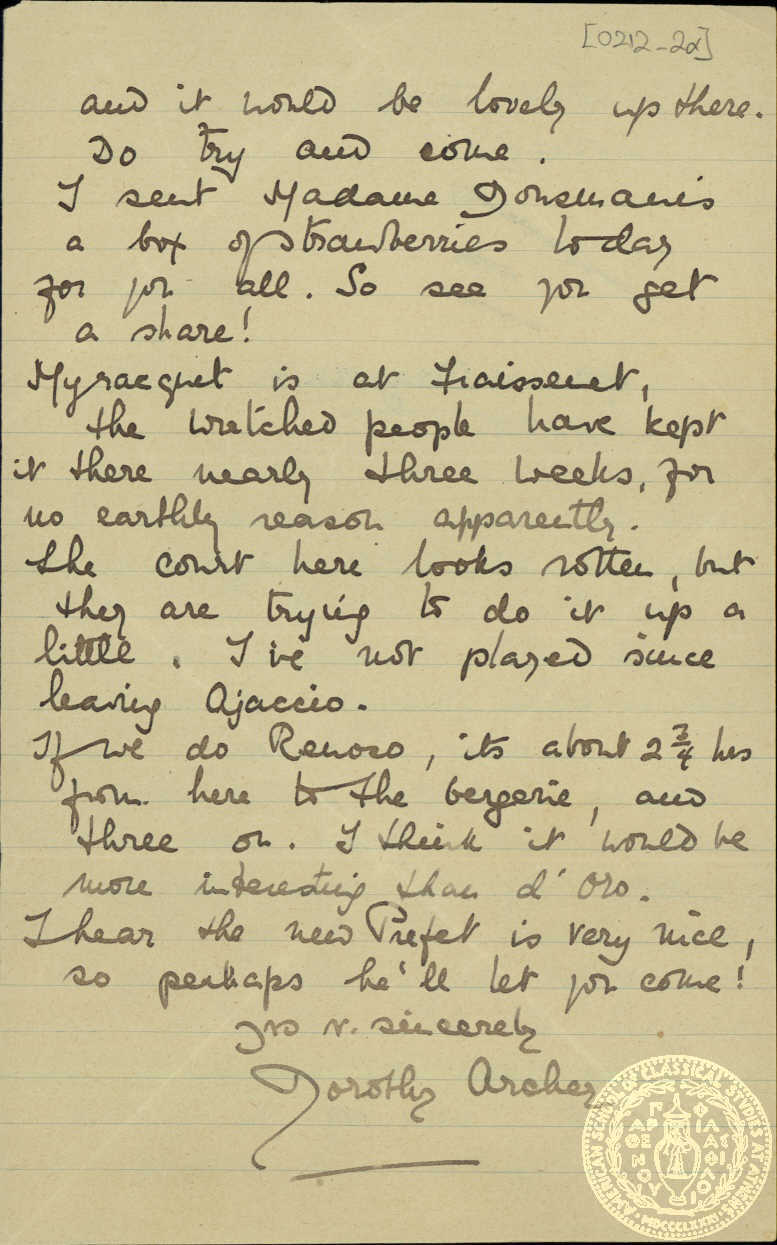 [0212-2α]
and it would be lovely up there.
Do try and come.
I sent Madame Dousmanis
a box of strawberries today
for you all. So see you get
a share!
My racquet is at Fraissenet,
the wretched people have kept
it there nearly three weeks, for
no earthly reason apparently.
The court here looks rotten, but
they are trying to do it up a
little. I've not played since
leaving Ajaccio.
If we do Renoso, its about 2 3/4 hrs
from here to the bergerie, and
three on. I think it would be
more interesting than d'Oro.
I hear the new Prefet is very nice,
so perhaps he'll let you come!
yrs v. sincerely
Dorothy Archer
AMERICAN SCHOOL OF CLASSICAL STUDIES AT ATHENS
MDCCCLXXXI